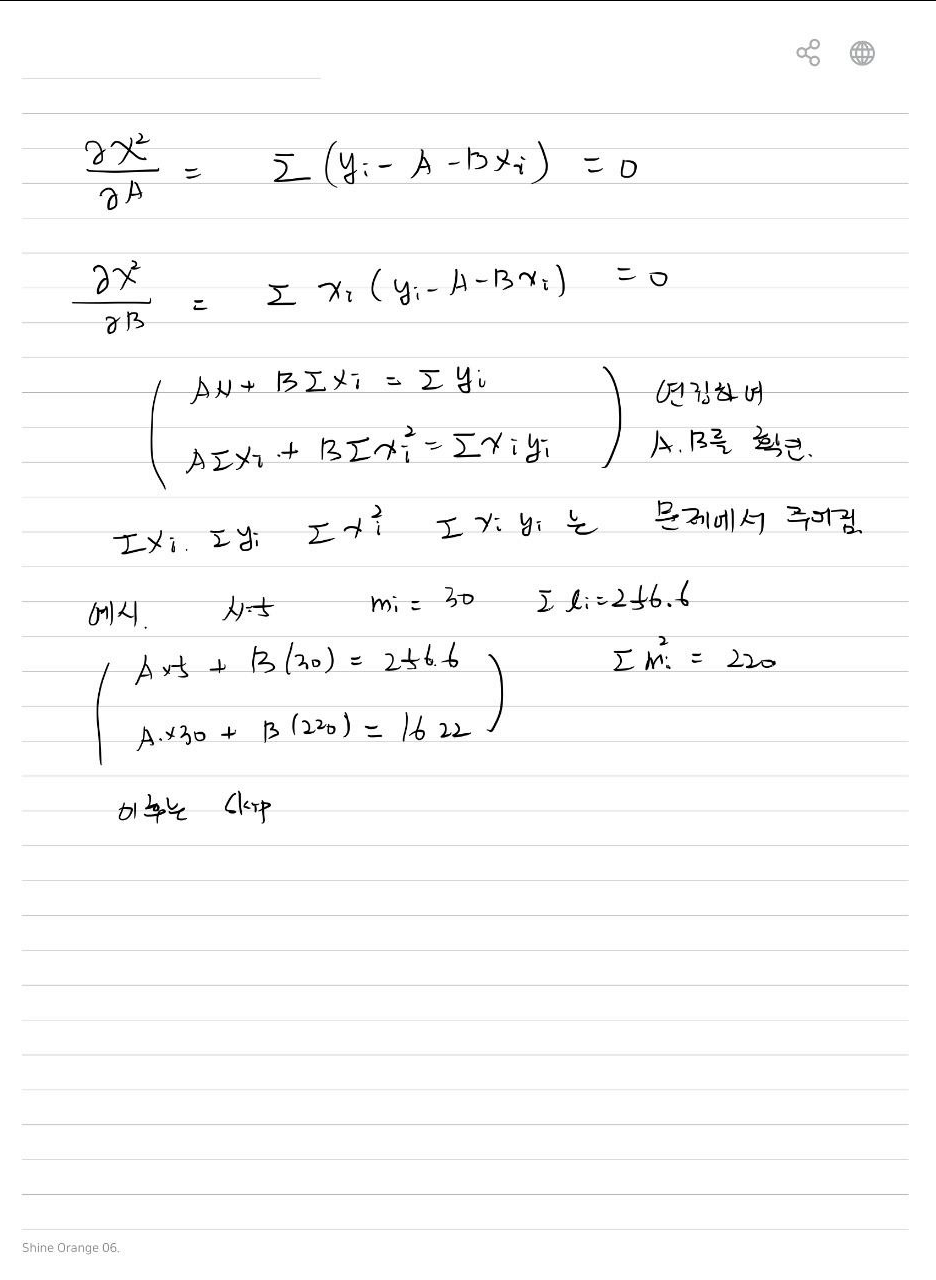 ∂χ²/∂A = Σ (yi - A - Bxi) = 0
∂χ²/∂B = Σ xi (yi - A - Bxi) = 0
AN + BΣxi = Σyi
연립하여
AΣxi + BΣxi² = Σxiyi
A.B를 확인.
Σxi. Σyi Σxi² Σxiyi는 문제에서 주어짐
예시. N=5 mi = 30 Σli = 256.6
A×5 + B(30) = 256.6 Σmi² = 220
A.×30 + B(220) = 1622
이후는 skip
Shine Orange 06.